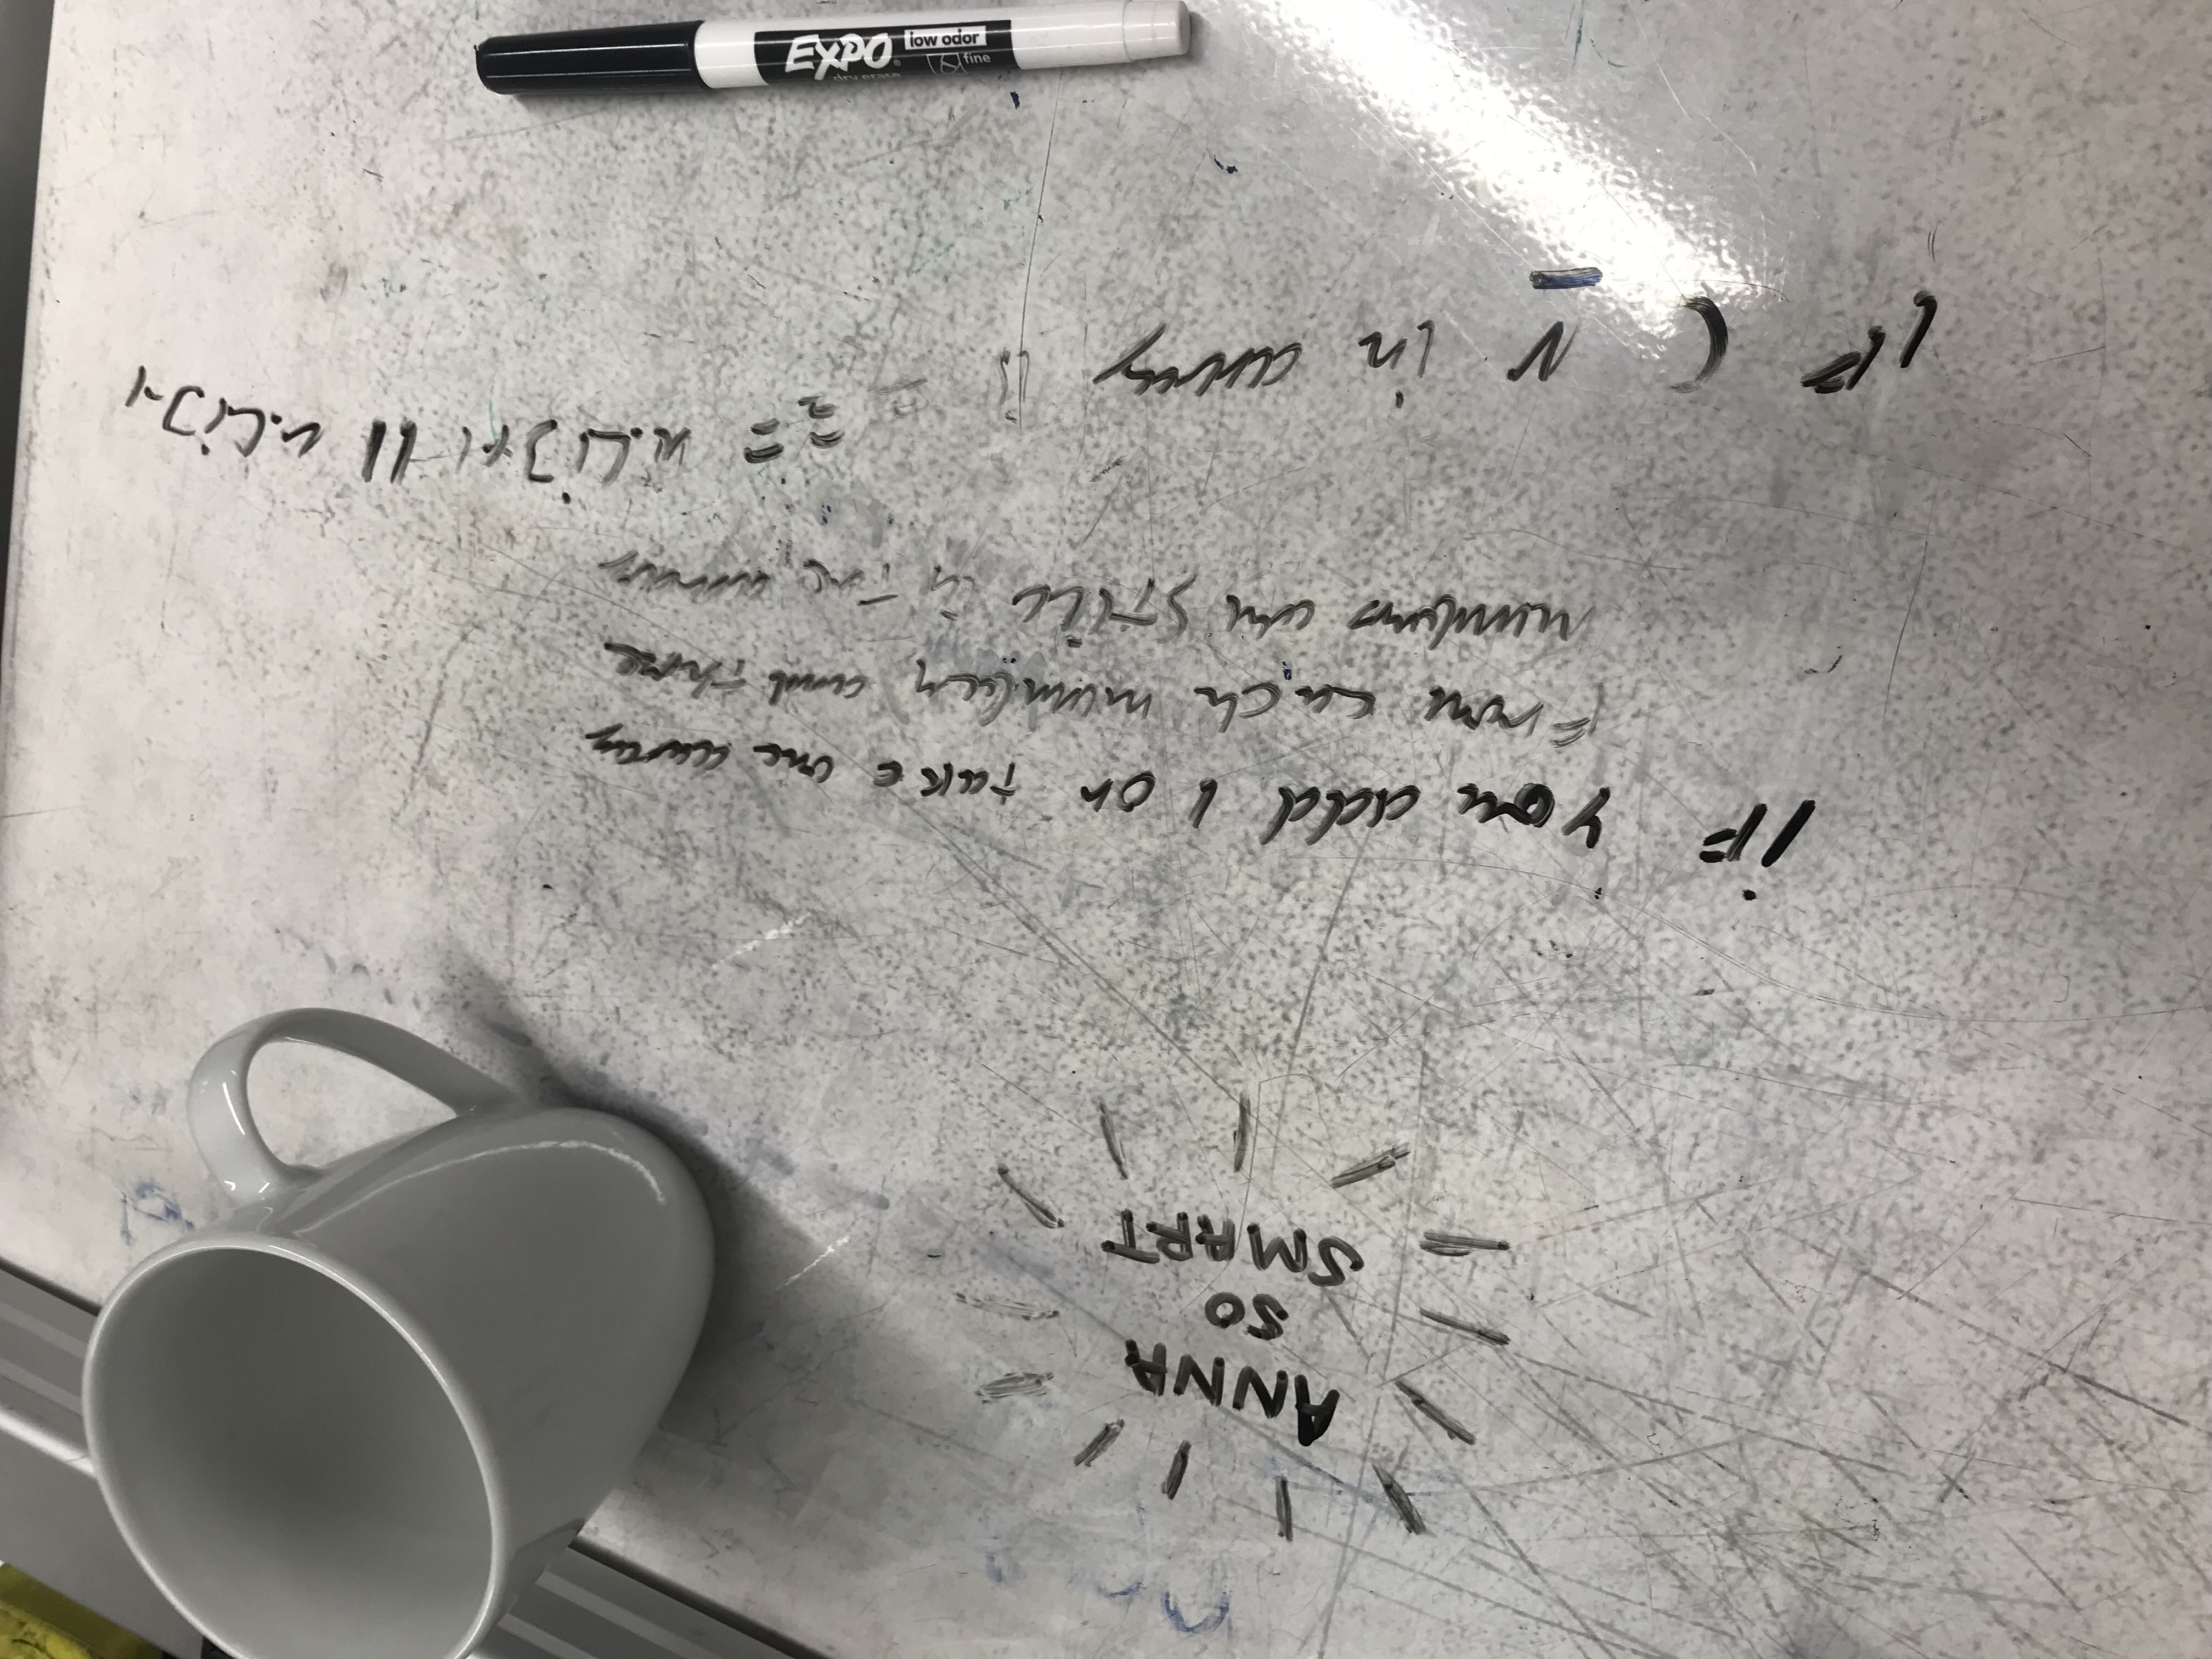 ANNA
SO
SMART
iF you add 1 or take one away
From each number, and those
numbers are still in the array
iF ( N in array == n.[i]+1 || n.[i]-1
EXPO
low odor
dry erase
fine